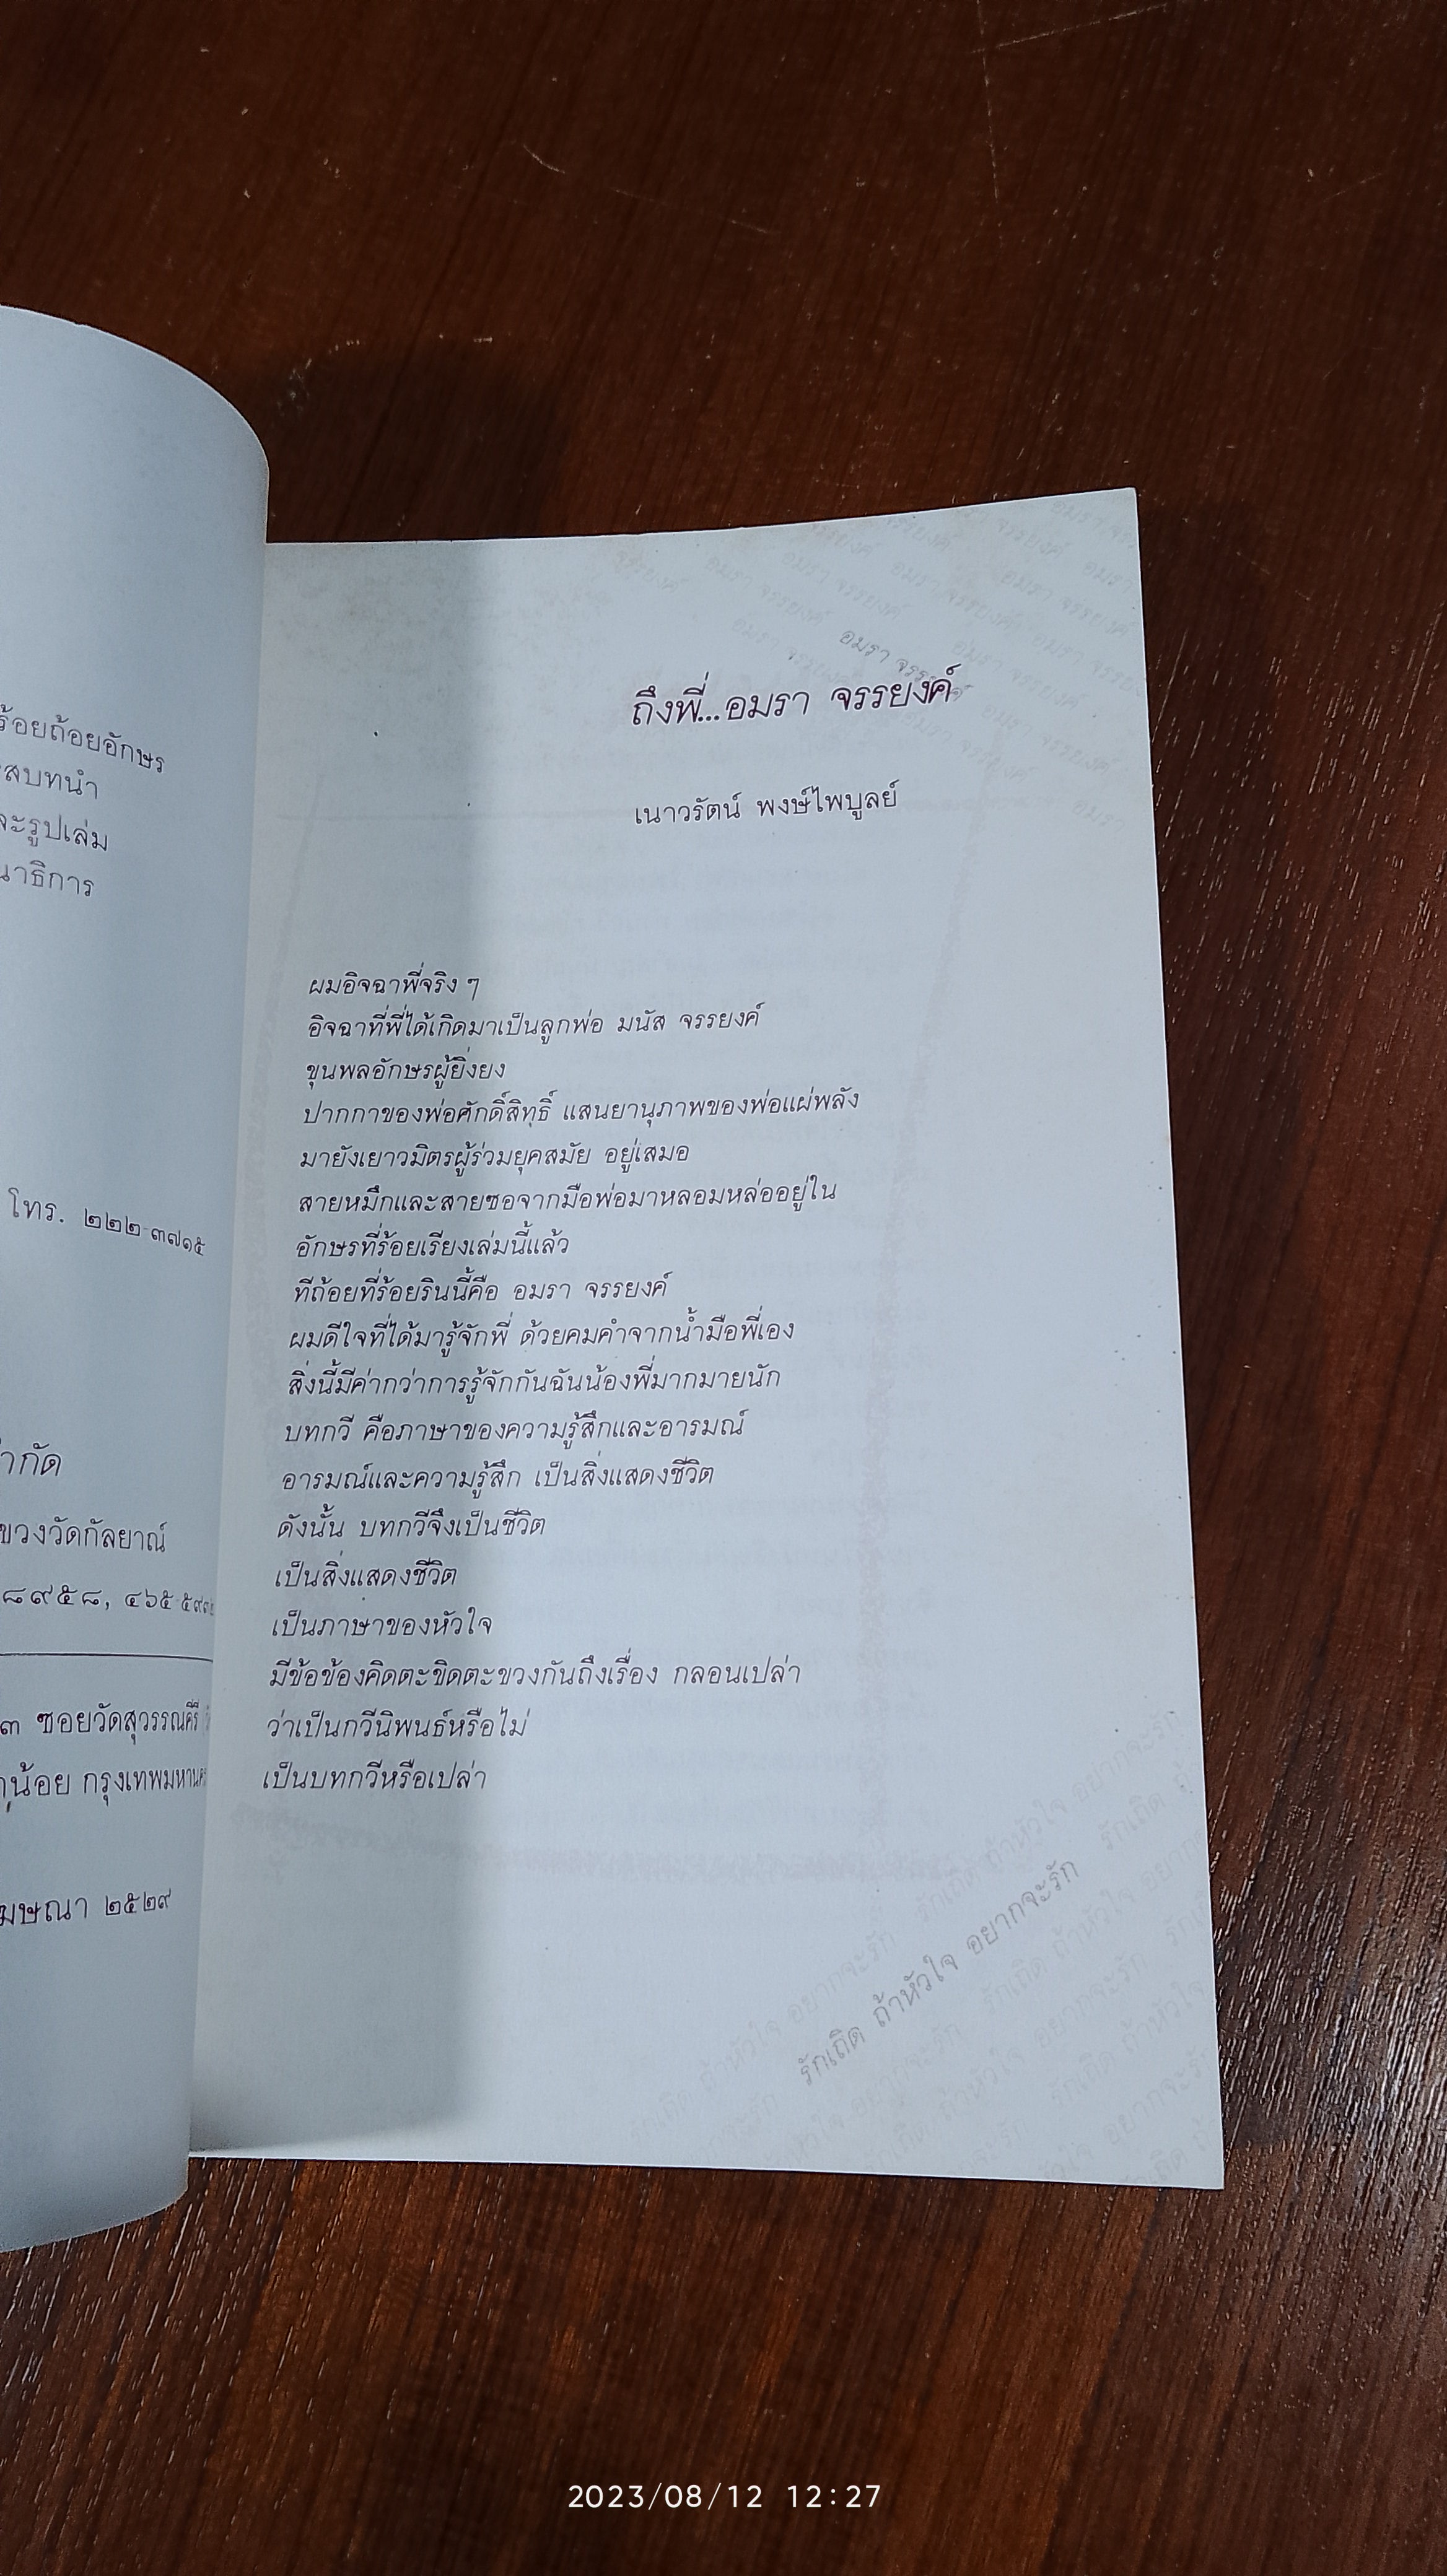 ร้อยถ้อยอักษร
สบทนำ
ละรูปเล่ม
นาธิการ
โทร. ๒๒๒-๓๗๑๕
ำกัด
ขวงวัดกัลยาณ์
๘๙๕๘, ๔๖๕-๕๙
๓ ซอยวัดสุวรรณคีรี
น้อย กรุงเทพมหานคร
ฆษณา ๒๕๒๙
อมรา จรรยงค์
ถึงพี่...อมรา จรรยงค์
เนาวรัตน์ พงษ์ไพบูลย์
ผมอิจฉาพี่จริง ๆ
อิจฉาที่พี่ได้เกิดมาเป็นลูกพ่อ มนัส จรรยงค์
ขุนพลอักษรผู้ยิ่งยง
ปากกาของพ่อศักดิ์สิทธิ์ แสนยานุภาพของพ่อแผ่พลัง
มายังเยาวมิตรผู้ร่วมยุคสมัย อยู่เสมอ
สายหมึกและสายซอจากมือพ่อมาหลอมหล่ออยู่ใน
อักษรที่ร้อยเรียงเล่มนี้แล้ว
ทีถ้อยที่ร้อยรินนี้คือ อมรา จรรยงค์
ผมดีใจที่ได้มารู้จักพี่ ด้วยคมคำจากน้ำมือพี่เอง
สิ่งนี้มีค่ากว่าการรู้จักกันฉันน้องพี่มากมายนัก
บทกวี คือภาษาของความรู้สึกและอารมณ์
อารมณ์และความรู้สึก เป็นสิ่งแสดงชีวิต
ดังนั้น บทกวีจึงเป็นชีวิต
เป็นสิ่งแสดงชีวิต
เป็นภาษาของหัวใจ
มีข้อข้องคิดตะขิดตะขวงกันถึงเรื่อง กลอนเปล่า
ว่าเป็นกวีนิพนธ์หรือไม่
เป็นบทกวีหรือเปล่า
รักเถิด ถ้าหัวใจ อยากจะรัก
2023/08/12 12:27